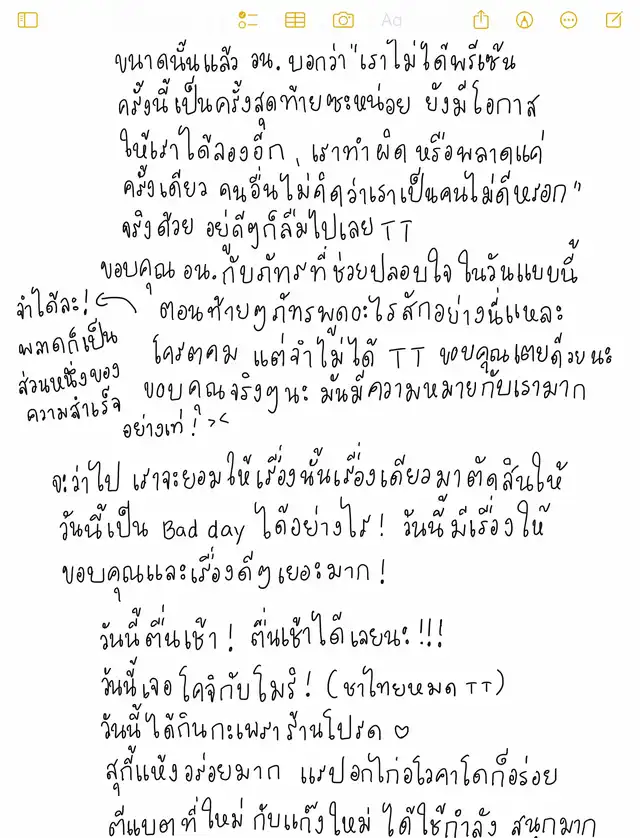 Aa
ขนาดนั้นแล้ว อน. บอกว่า "เราไม่ได้พรีเซ้น
ครั้งนี้เป็นครั้งสุดท้ายซะหน่อย ยังมีโอกาส
ให้เราได้ลองอีก , เราทำผิด หรือพลาดแค่
ครั้งเดียว คนอื่นไม่คิดว่าเราเป็นคนไม่ดีหรอก"
จริงด้วย อยู่ดีๆก็ลืมไปเลย TT
ขอบคุณ อน. กับภัทรที่ช่วยปลอบใจ ในวันแบบนี้
ตอนท้ายๆภัทรพูดอะไรสักอย่างนี่แหละ
โคตคม แต่จำไม่ได้ TT ขอบคุณเตยด้วยนะ
ขอบคุณจริงๆนะ มันมีความหมายกับเรามาก
จำได้ละ!
พลาดก็เป็น
ส่วนหนึ่งของ
ความสำเร็จ
อย่างเท่! ><
จะว่าไป เราจะยอมให้เรื่องนั้นเรื่องเดียวมาตัดสินให้
วันนี้เป็น Bad day ได้อย่างไร! วันนี้มีเรื่องให้
ขอบคุณและเรื่องดีๆเยอะมาก!
วันนี้ตื่นเช้า! ตื่นเช้าได้เลยนะ!!!
วันนี้เจอโคจิกับโมริ! (ชาไทยหมด TT)
วันนี้ได้กินกะเพราร้านโปรด ♡
สุกี้แห้งอร่อยมาก แรปอกไก่อโวคาโดก็อร่อย
ตีแบตที่ใหม่ กับแก๊งใหม่ ได้ใช้กำลัง สนุกมาก